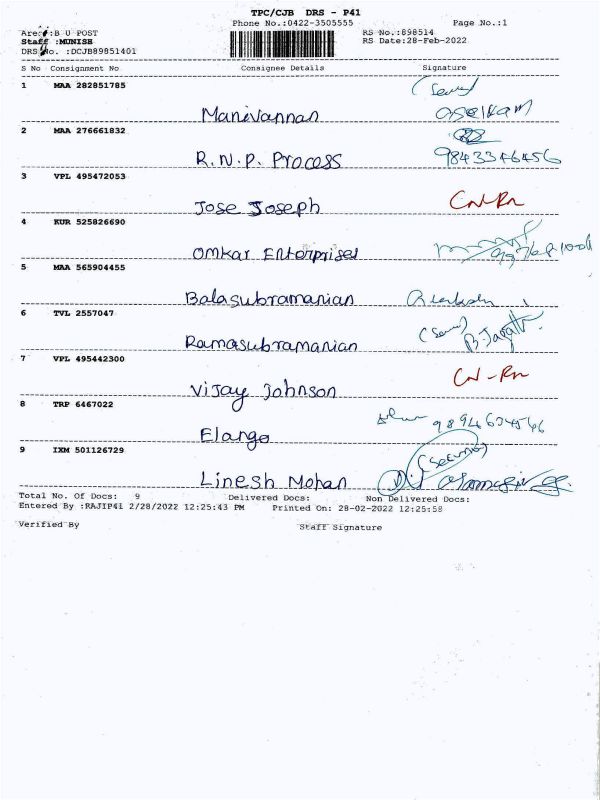 TPC/CJB DRS - P41
Phone No.:0422-3505555 Page No.:1
Area :B U POST RS No.:898514
Staff :MUNISH RS Date:28-Feb-2022
DRS No. :DCJB89851401
S No Consignment No Consignee Details Signature
1 MAA 282851785
Manivannan
2 MAA 276661832
R.N.P. Process 9843346456
3 VPL 495472053
Jose Joseph CN-Rn
4 KUR 525826690
Omkar Enterprises
5 MAA 565904455
Balasubramanian
6 TVL 2557047
Ramasubramanian
7 VPL 495442300
Vijay Johnson CN-Rn
8 TRP 6467022
Elango
9 IXM 501126729
Linesh Mohan
Total No. Of Docs: 9 Delivered Docs: Non Delivered Docs:
Entered By :RAJIP41 2/28/2022 12:25:43 PM Printed On: 28-02-2022 12:25:58
Verified By Staff Signature